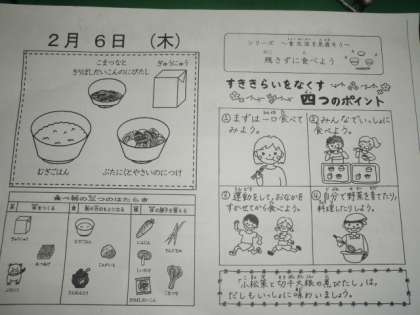 2月 6日 (木)
こまつなと
きりぼしだいこんのにびたし
ぎゅうにゅう
むぎごはん
ぶたにくとやさいのにつけ
食べ物の三つのはたらき
ぎゅうにゅう
むぎごはん
にんじん
シリーズ ～食生活を見直そう～
残さずに食べよう
すききらいをなくす
四つのポイント
①まずは一口食べて
みよう。
②みんなでいっしょに
食べよう。
③運動をして、おなかを
すかせてから食べよう。
④自分で野菜を育てたり、
料理したりしよう。
「小松菜と切干大根の煮びたし」は、
だしもいっしょに味わいましょう。